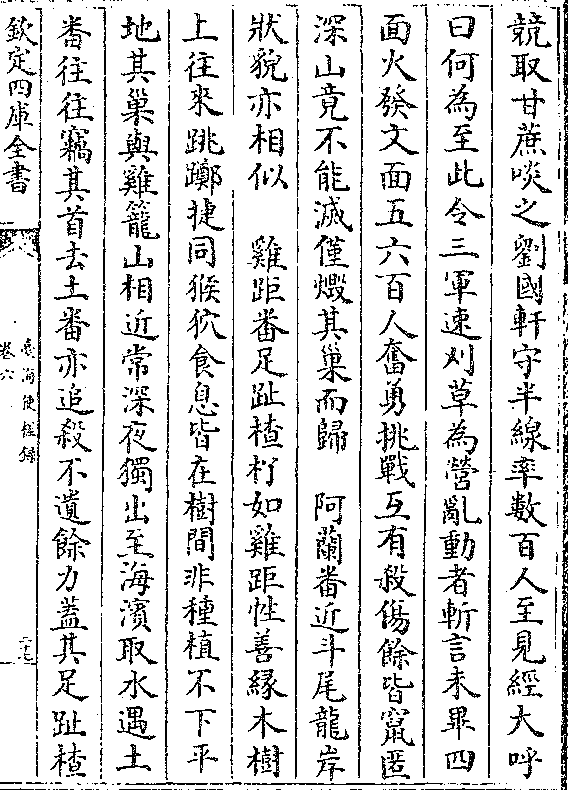 競取甘蔗啖之劉國軒守半線率數百人至見經大呼
曰何為至此令三軍速刈草為營亂動者斬言未畢四
面火發文面五六百人奮勇挑戰互有殺傷餘皆竄匿
深山竟不能滅僅燬其巢而歸　阿蘭番近斗尾龍岸
狀貌亦相似　雞距番足趾楂枒如雞距性善緣木樹
上往來跳躑捷同猴狖食息皆在樹間非種植不下平
地其巢與雞籠山相近常深夜獨出至海濱取水遇土
番往往竊其首去土番亦追殺不遺餘力蓋其足趾楂
欽定四庫全書
臺海使槎録
卷六
二十七